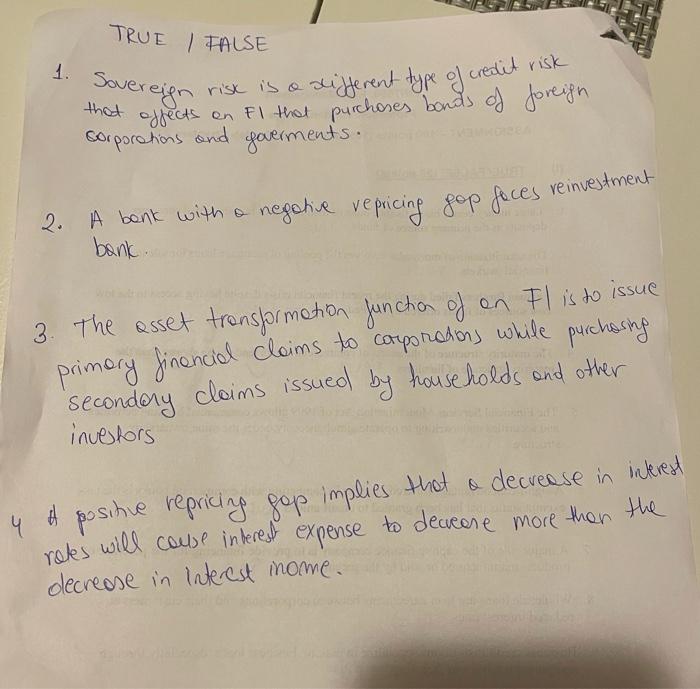 TRUE / FALSE
1. Sovereign risk is a different type of credit risk
that affects an FI that purchases bonds of foreign
corporations and goverments.
2. A bank with a negative repricing gap faces reinvestment
bank.
3. The asset transformation function of an FI is to issue
primary financial claims to corporations while purchasing
secondary claims issued by households and other
investors
4 A positive repricing gap implies that a decrease in interest
rates will cause interest expense to decrease more than the
decrease in interest income.